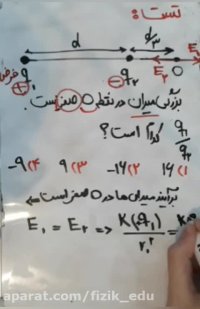 تست:
d
d/3
E₁
E₂
⊕ q₁
⊖ q₂
O
فرض
بزرگی میدان در نقطه O صفر است.
q₁/q₂ کدام است؟
۱) ۱۶ ۲) -۱۶ ۳) ۹ ۴) -۹
برآیند میدان ها در O صفر است
E₁ = E₂ ⇒ K(q₁)/r₁² = K
aparat.com/fizik_edu